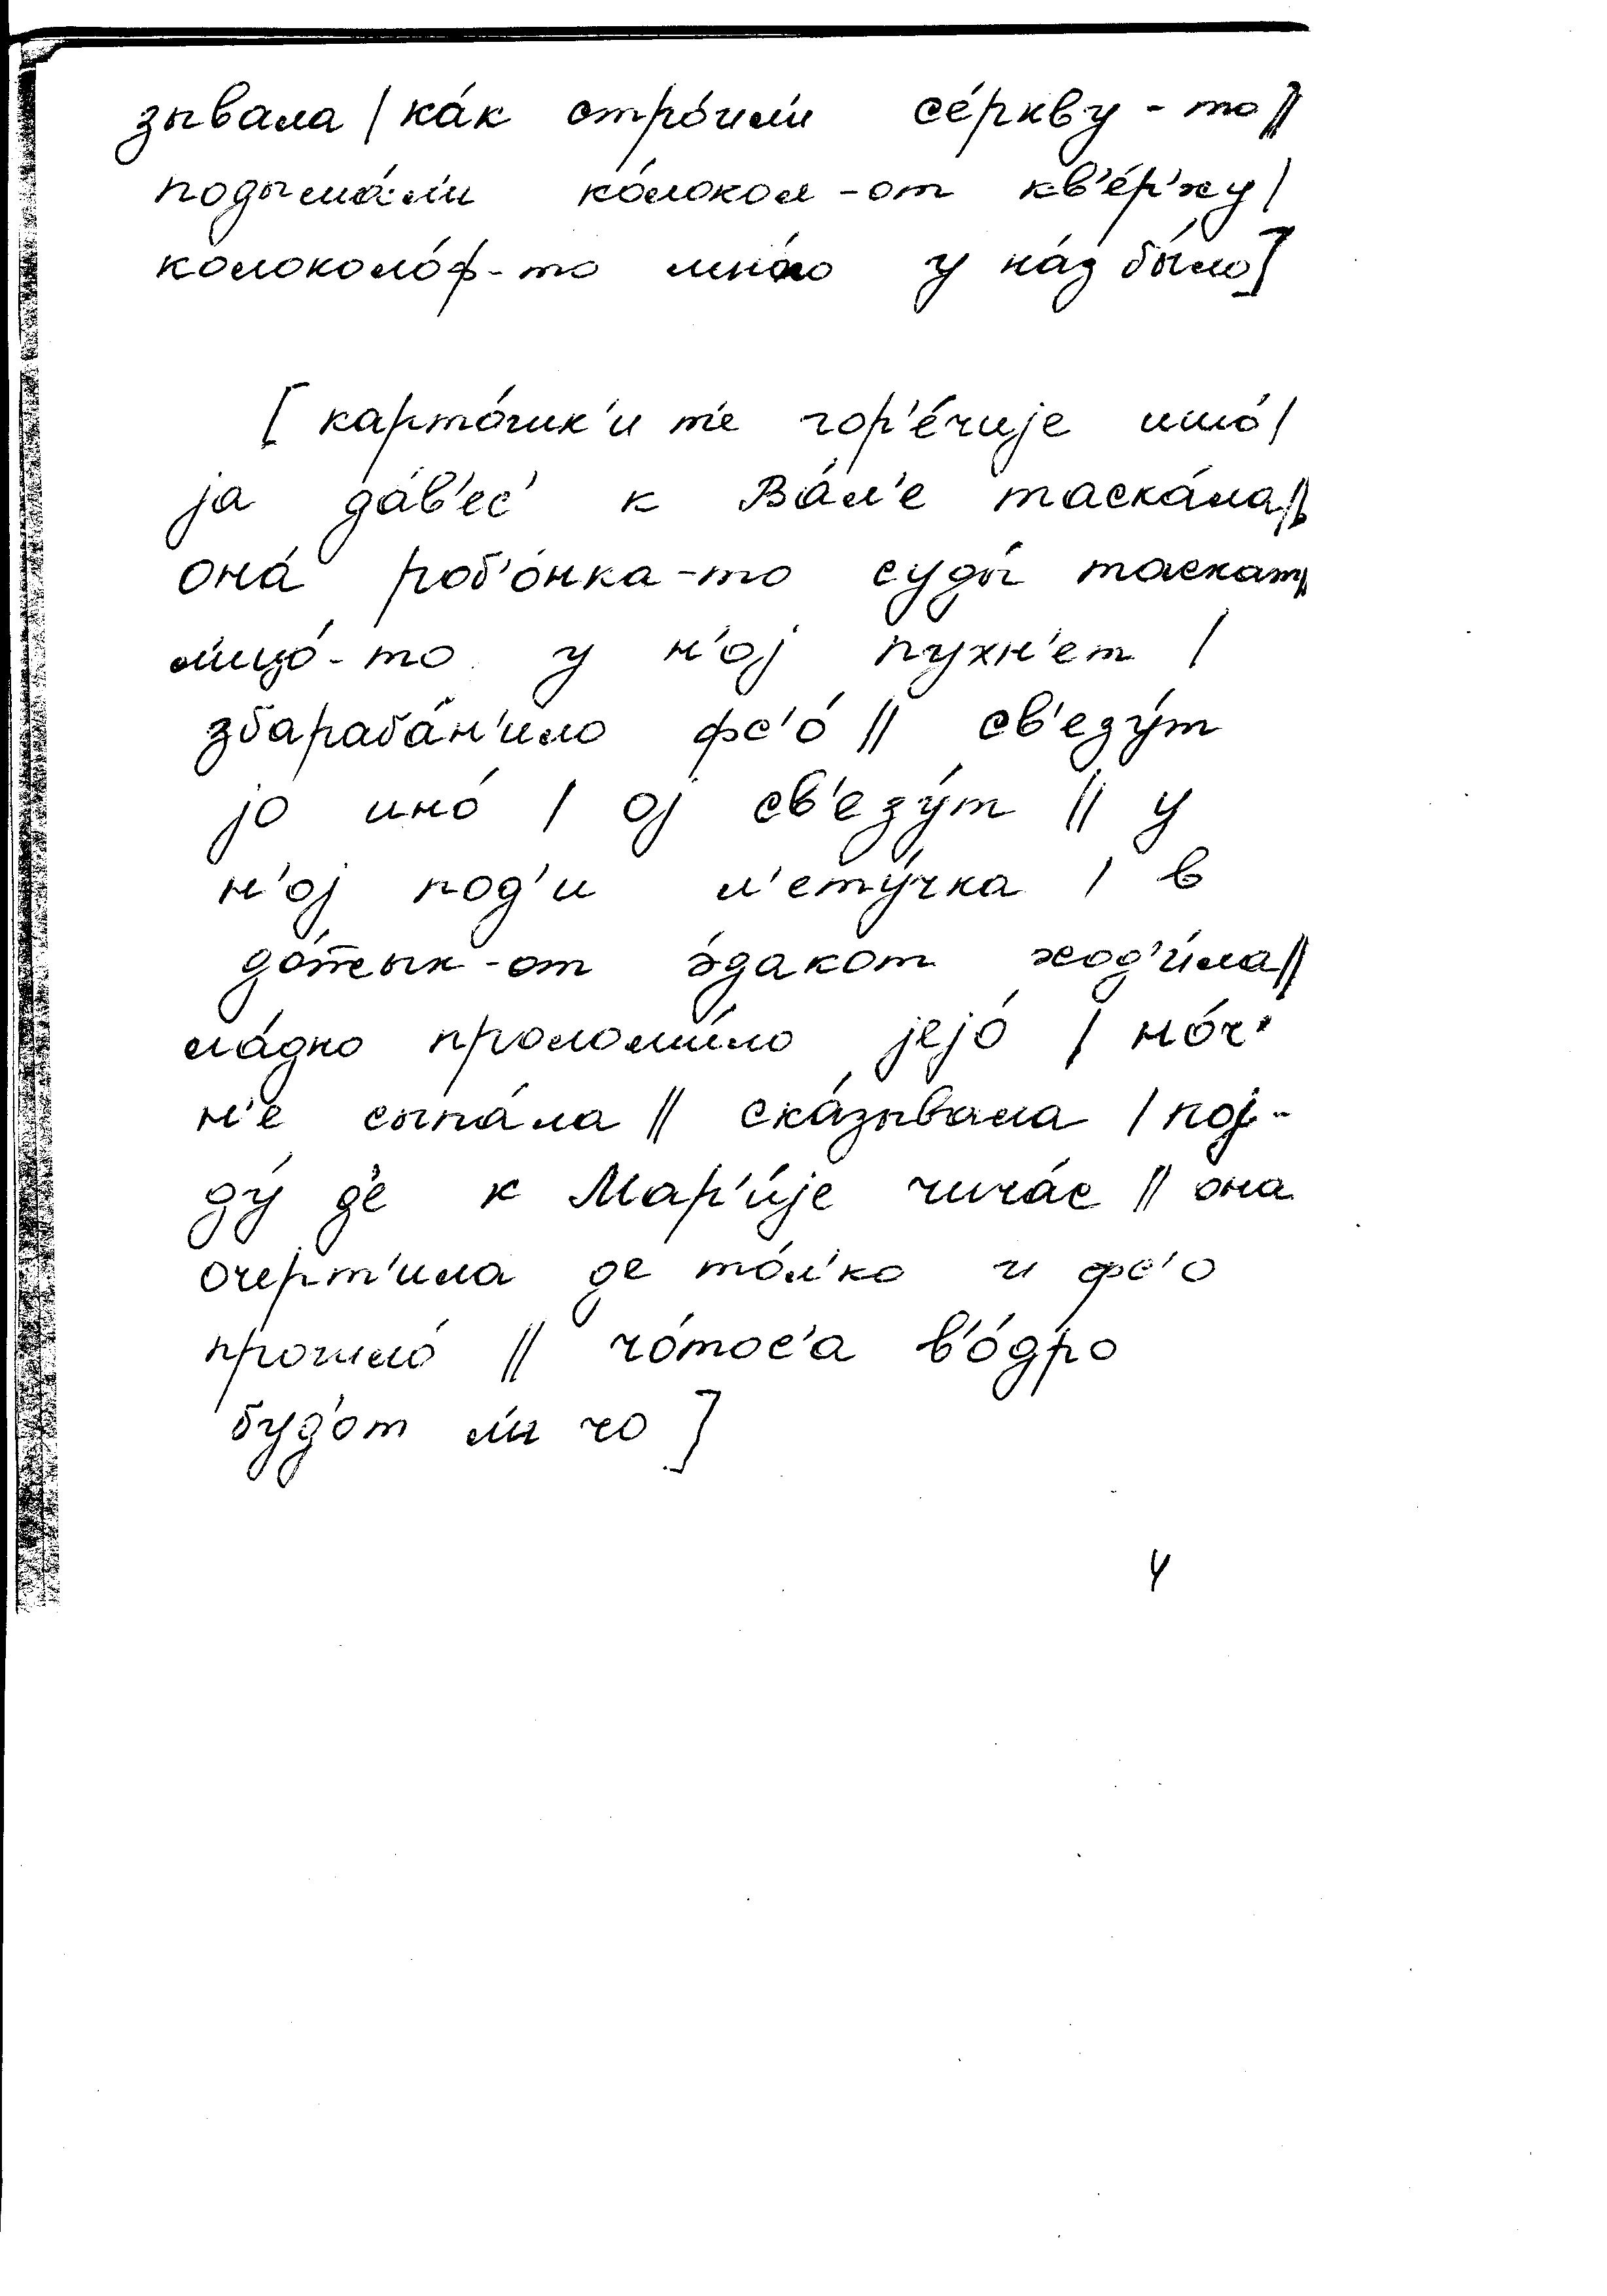 зывала / ка́к стро́ил'и се́ркву-то //
подыма́л'и ко́локол-от кв'е́р'ху /
колоколо́ф-то мно́го у на́з бы́ло]
[ карто́шк'и т'е гор'е́чиjе ишо́ /
jа да́в'ес' к Ва́л'е таска́ла //
она́ роб'о́нка-то суды́ таскат //
л'ицо́-то у н'оj пухн'ет /
збараба́н'ило фс'о́ // св'езу́т
jо ино́ / оj св'езу́т // у
н'оj под'и л'ету́чка / в
до́тык-от э́дакот ход'и́ла //
ла́дно проломи́ло jejо́ / но́ч'
н'е сыпа́ла // ска́зывала / поj-
ду́ д'е к Мар'и́jе чича́с // она
очерт'ила де то́л'ко и фс'о
прошло́ // чо́тос'а в'о́дро
буд'от л'и чо ]
4